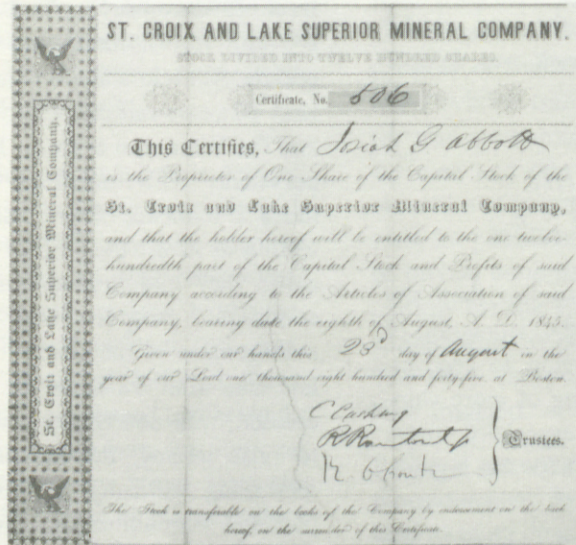 ST. CROIX AND LAKE SUPERIOR MINERAL COMPANY.
STOCK DIVIDED INTO TWELVE HUNDRED SHARES.
Certificate, No. 506
This Certifies, That Josiah G Abbott
is the Proprietor of One Share of the Capital Stock of the
St. Croix and Lake Superior Mineral Company,
and that the holder hereof will be entitled to the one twelve-
hundredth part of the Capital Stock and Profits of said
Company according to the Articles of Association of said
Company, bearing date the eighth of August, A. D. 1845.
Given under our hands this 23d day of August in the
year of our Lord one thousand eight hundred and forty-five, at Boston.
C Cushing
R Rantoul Jr
Trustees.
The Stock is transferable on the books of the Company by indorsement on the back
hereof, on the surrender of this Certificate.
St. Croix and Lake Superior Mineral Company.